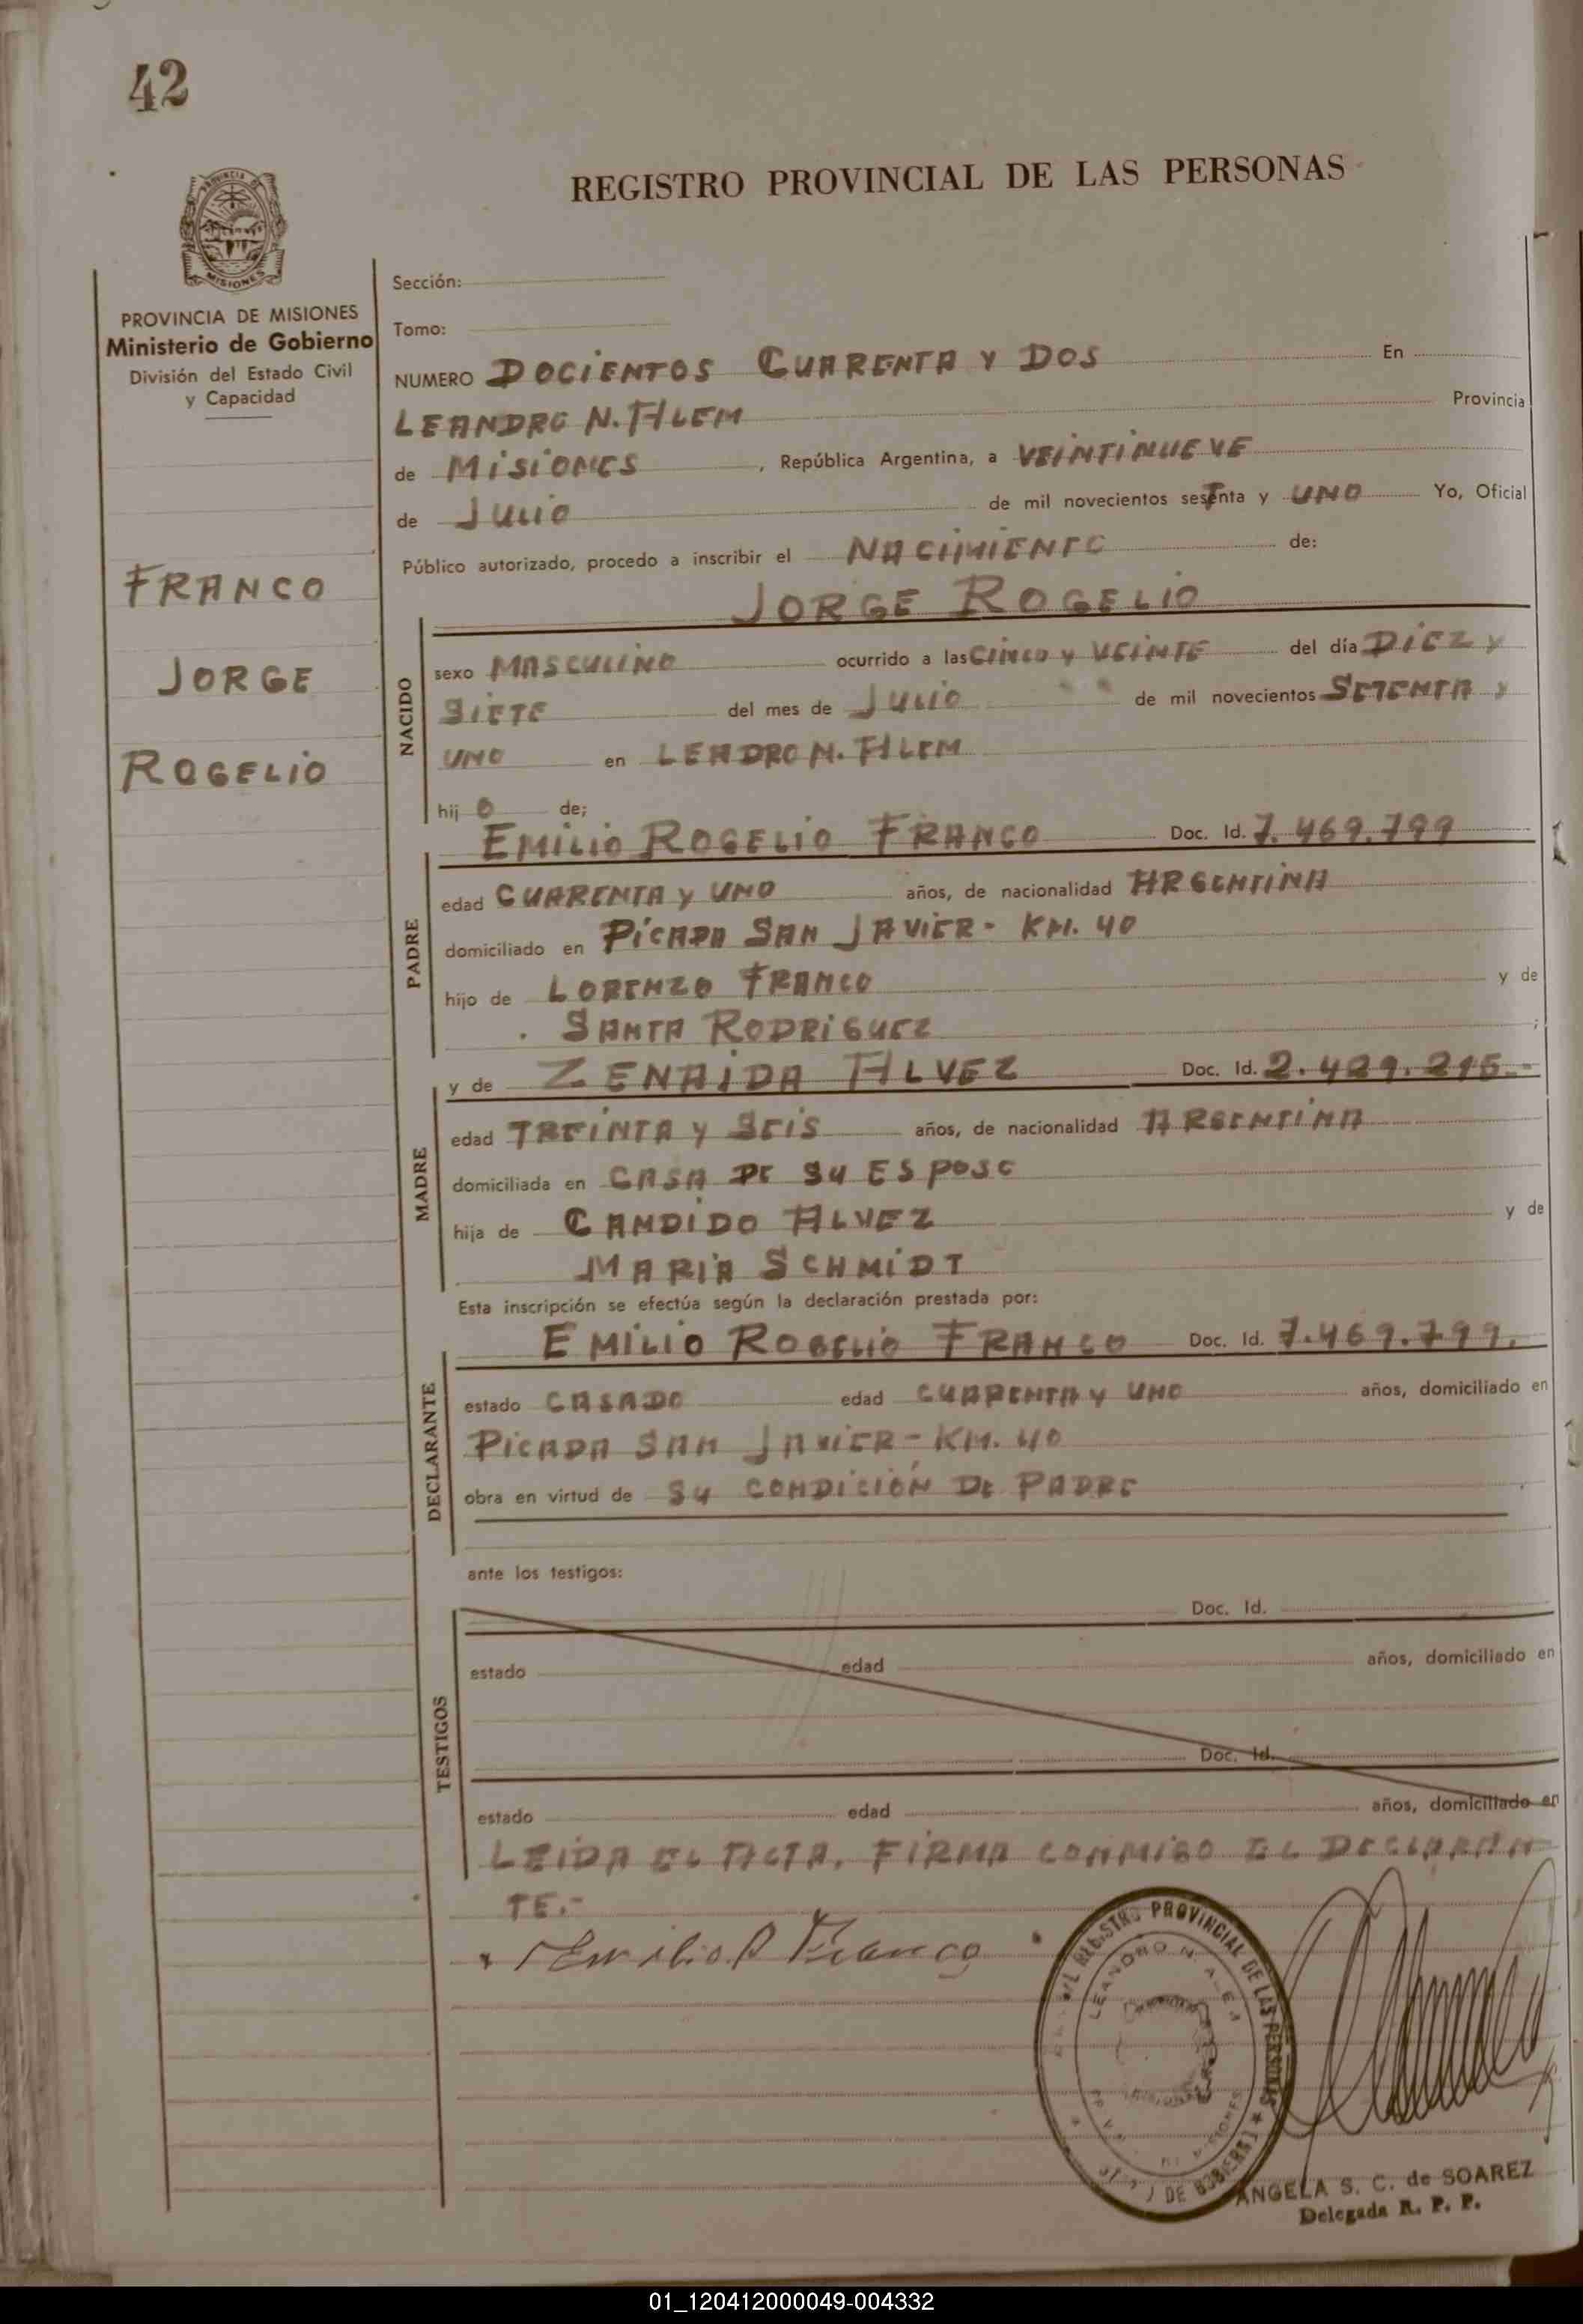 42
REGISTRO PROVINCIAL DE LAS PERSONAS
MISIONES
PROVINCIA DE MISIONES
Ministerio de Gobierno
División del Estado Civil
y Capacidad
FRANCO
JORGE
ROGELIO
Sección:
Tomo:
NUMERO DOCIENTOS CUARENTA Y DOS En
LEANDRO N. ALEM Provincia
de MISIONES, República Argentina, a VEINTINUEVE
de JULIO de mil novecientos sesTnta y UNO Yo, Oficial
Público autorizado, procedo a inscribir el NACIMIENTO de:
JORGE ROGELIO
NACIDO
sexo MASCULINO ocurrido a las CINCO y VEINTE del día DIEZ y
SIETE del mes de JULIO de mil novecientos SETENTA y
UNO en LEADRO N. ALEM
hij O de;
EMILIO ROGELIO FRANCO Doc. Id. 7.469.799
PADRE
edad CUARENTA y UNO años, de nacionalidad ARGENTINA
domiciliado en PICADA SAN JAVIER- KM. 40
hijo de LORENZO FRANCO y de
SANTA RODRIGUEZ ;
y de ZENAIDA ALVEZ Doc. Id. 2.429.215.-
MADRE
edad TREINTA y SEIS años, de nacionalidad ARGENTINA
domiciliada en CASA DE SU ESPOSO
hija de CANDIDO ALVEZ y de
MARIA SCHMIDT
Esta inscripción se efectúa según la declaración prestada por:
EMILIO ROGELIO FRANCO Doc. Id. 7.469.799.
DECLARANTE
estado CASADO edad CUARENTA y UNO años, domiciliado en
PICADA SAN JAVIER-KM. 40
obra en virtud de SU CONDICIÓN DE PADRE
ante los testigos:
TESTIGOS
Doc. Id.
estado edad años, domiciliado en
Doc. Id.
estado edad años, domiciliado en
LEIDA EL ACTA, FIRMA CONMIGO EL DECLARAN
TE.-
Emilio R Franco
REGISTRO PROVINCIAL DE LAS PERSONAS
LEANDRO N. ALEM
ANGELA S. C. de SOAREZ
Delegada R. P. P.
01_120412000049-004332